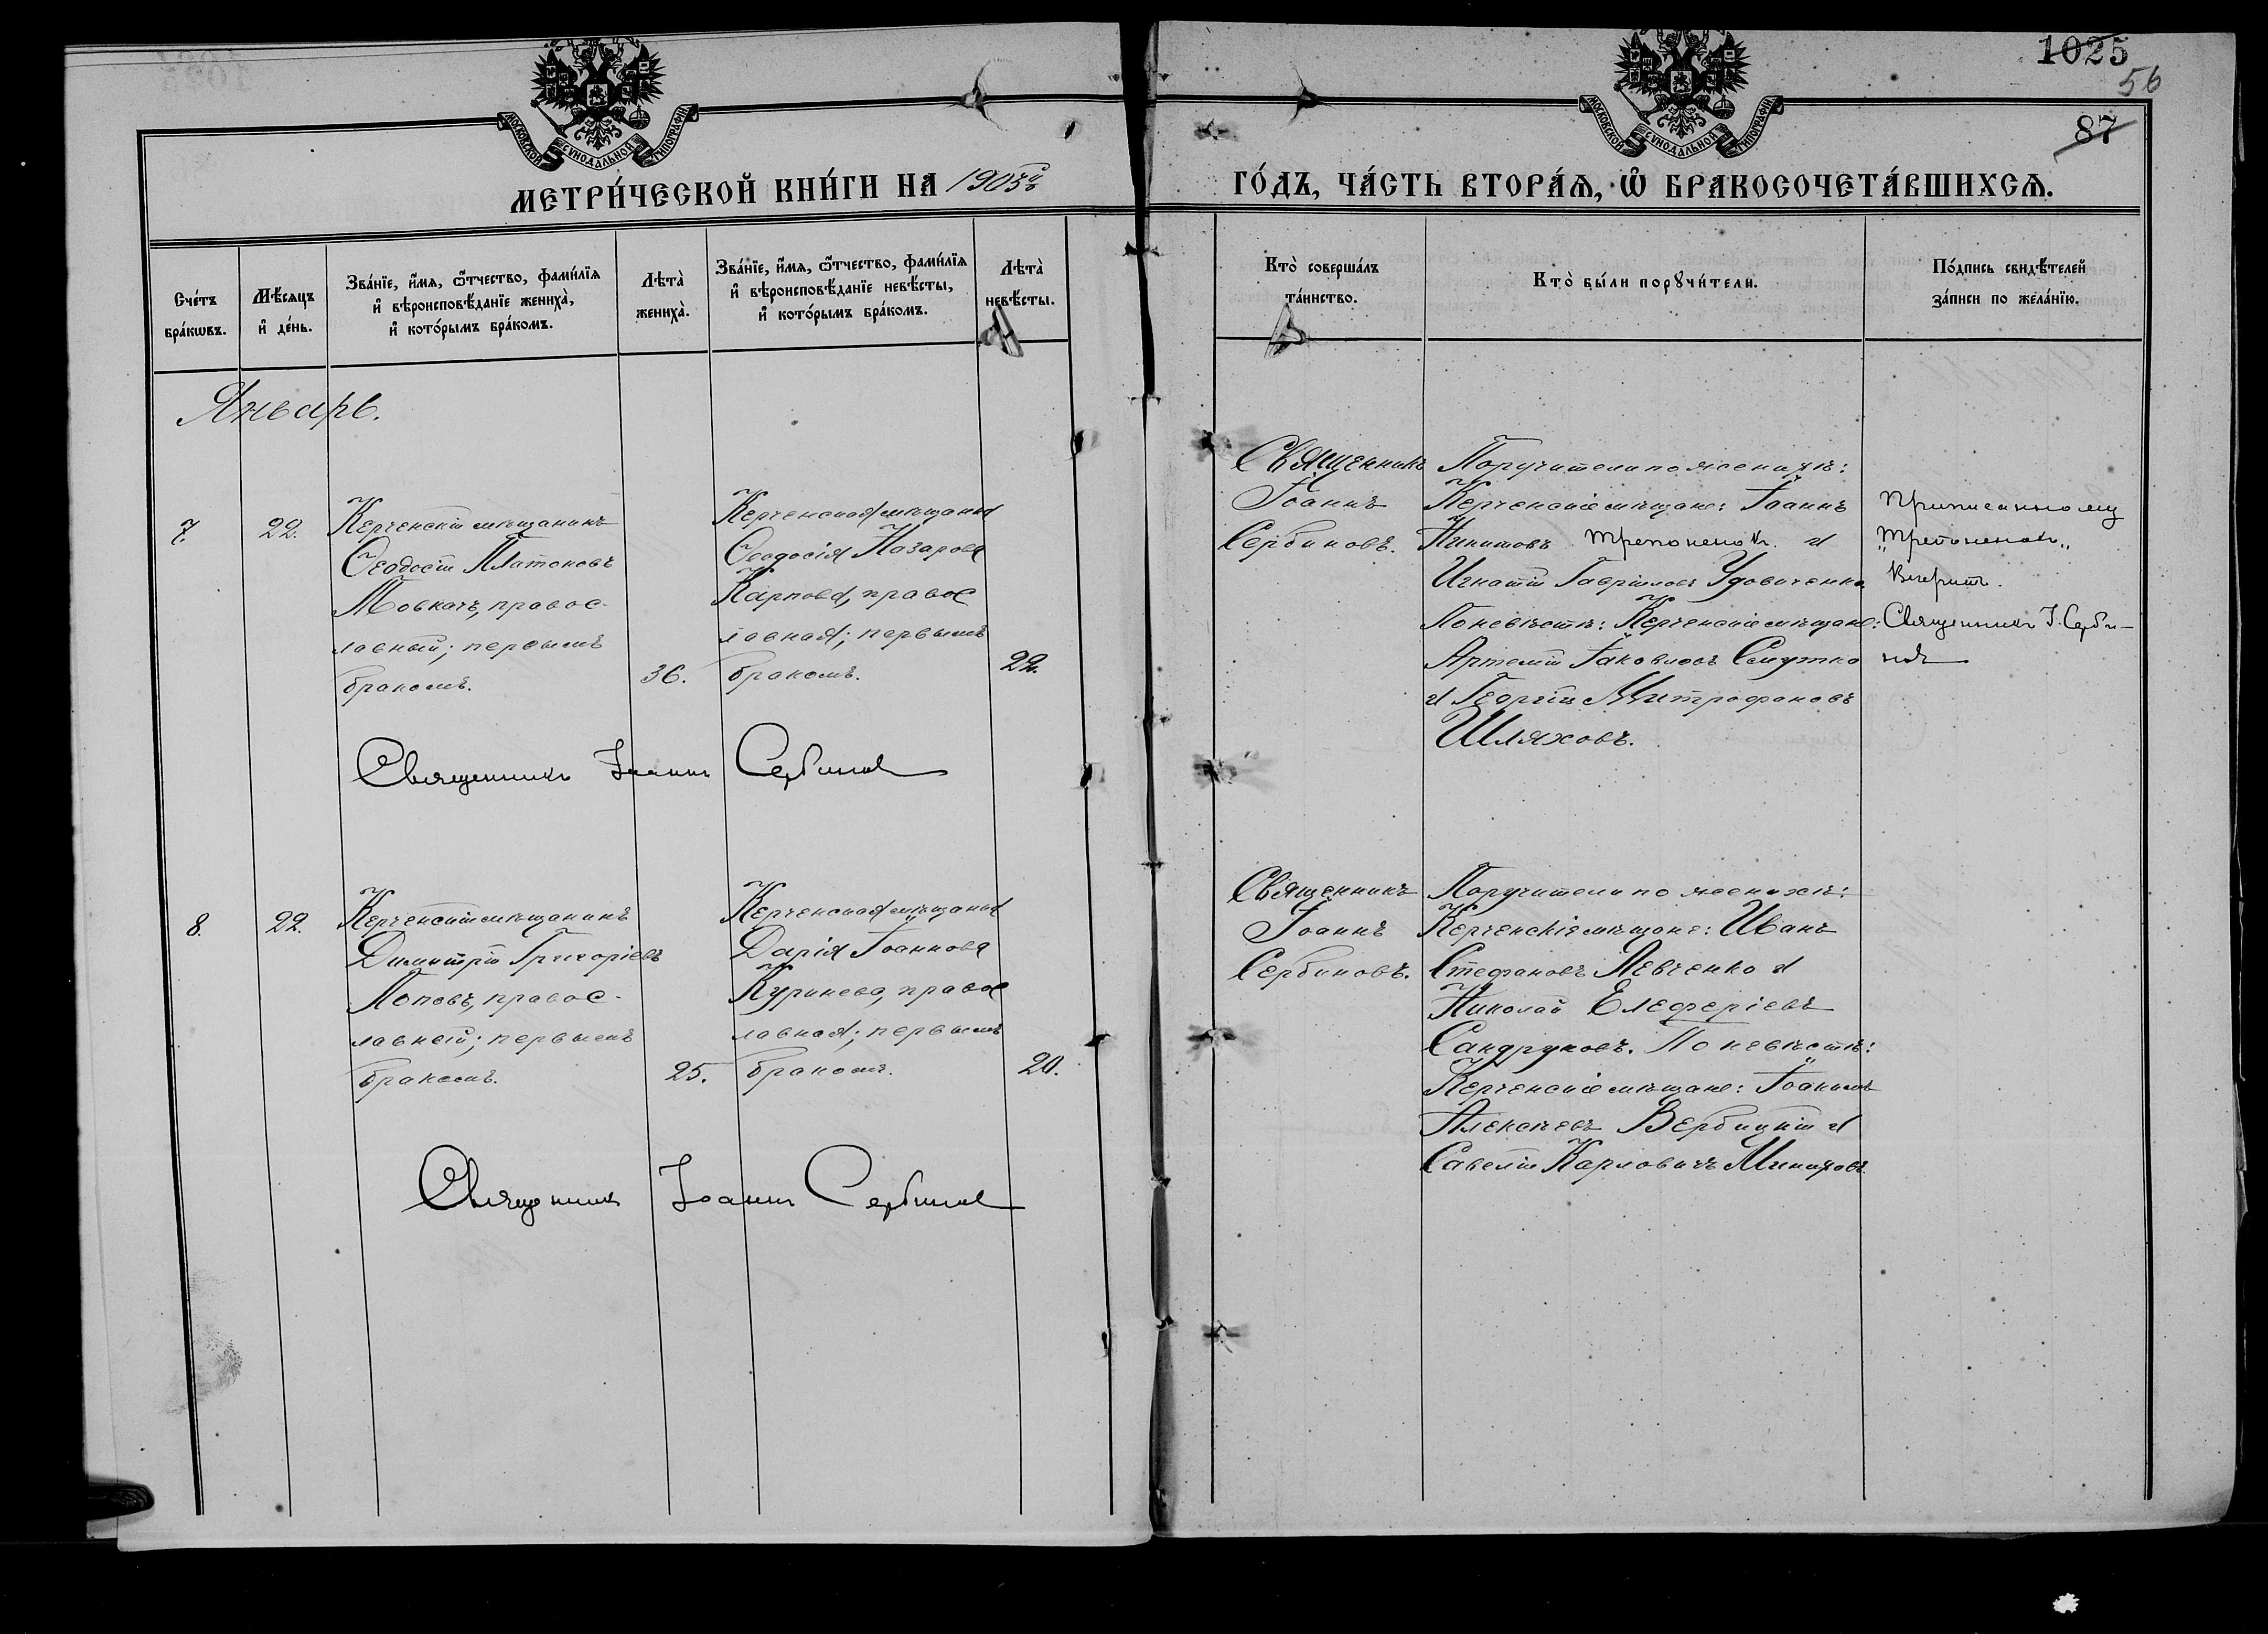 1025
56
87
МОСКОВСКОЙ СѴНОДАЛЬНОЙ ТИПОГРАФІИ
МОСКОВСКОЙ СѴНОДАЛЬНОЙ ТИПОГРАФІИ
МЕТРИ́ЧЕСКОЙ КНИ́ГИ НА 1903й
ГО́ДЪ, ЧА́СТЬ ВТОРА́Ѧ, Ѿ БРАКОСОЧЕТА́ВШИХСѦ.
Сче́тъ бра́кѡвъ.
Мѣ́сяцъ и҆ де́нь.
Зва́нїе, и҆́мя, ѻ҆́тчество, фами́лїя и҆ вѣроисповѣ́данїе жениха̀, и҆ кото́рымъ бра́комъ.
Лѣта̀ жениха̀.
Зва́нїе, и҆́мя, ѻ҆́тчество, фами́лїя и҆ вѣроисповѣ́данїе невѣ́сты, и҆ кото́рымъ бра́комъ.
Лѣта̀ невѣ́сты.
Кто̀ соверша́лъ та́инство.
Кто̀ бы́ли порꙋчи́тели.
По́дпись свидѣ́телей за́писи по жела́нїю.
Январь.
7.
22.
Керченскій мѣщанинъ
Ѳеодосій Платоновъ
Мовкачъ, правос-
лавный; первымъ
бракомъ.
36.
Керченская мѣщанка
Ѳеодосія Назарова
Карпова, правос
лавная; первымъ
бракомъ.
22.
Священникъ
Іоаннъ
Сербиновъ.
Поручители по женихѣ:
Керченскіе мѣщане: Іоаннъ
Никитовъ Трепоненокъ. и
Игнатій Гавріиловъ Удовиченко
По невѣстѣ: Керченскіе мѣщане:
Артемій Іаковлевъ Смутко
и Георгій Митрофановъ
Шляховъ.
Приписанному
"Трепоненокъ"
вѣрить.
Священникъ І. Серби-
новъ
Священникъ Іоаннъ Сербиновъ
8.
22.
Керченскій мѣщанинъ
Димитрій Григоріевъ
Поповъ, правос-
лавный; первымъ
бракомъ.
25.
Керченская мѣщанка
Дарія Іоаннова
Куринева, правос
лавная; первымъ
бракомъ.
20.
Священникъ
Іоаннъ
Сербиновъ.
Поручители по женихѣ:
Керченскіе мѣщане: Иванъ
Стефановъ Левченко и
Николай Елеферіевъ
Сандруковъ. По невѣстѣ:
Керченскіе мѣщане: Іоакимъ
Алексѣевъ Вербицкій и
Савелій Карповичъ
Священникъ Іоаннъ Сербиновъ